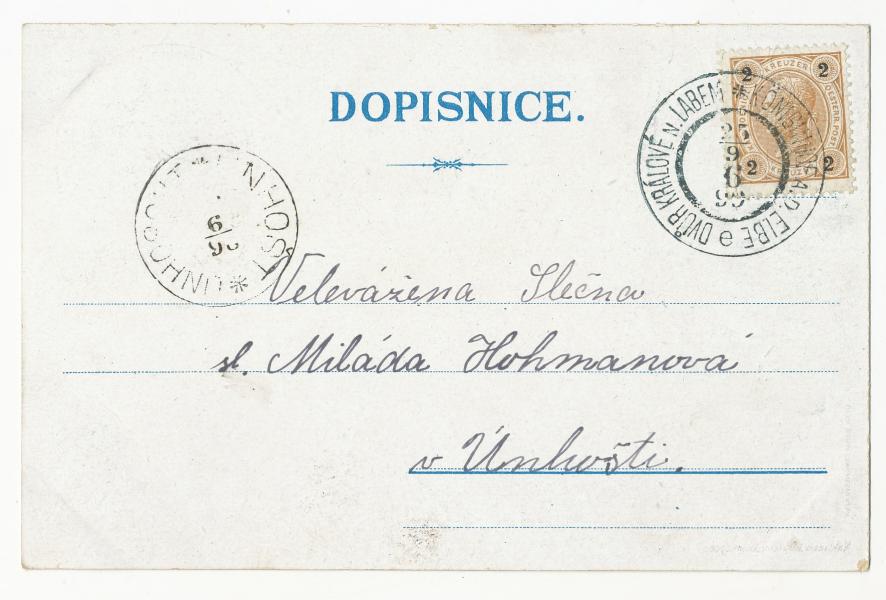 DOPISNICE.
2 KREUZER 2
2 2
DVŮR KRÁLOVÉ N. LABEM * KÖNIGINHOF A.D. ELBE e
9
6
99
UNHOŠŤ * UNHOSCHT *
6
Velevážena Slečna
sl. Miláda Hohmanová
v Únhošti.